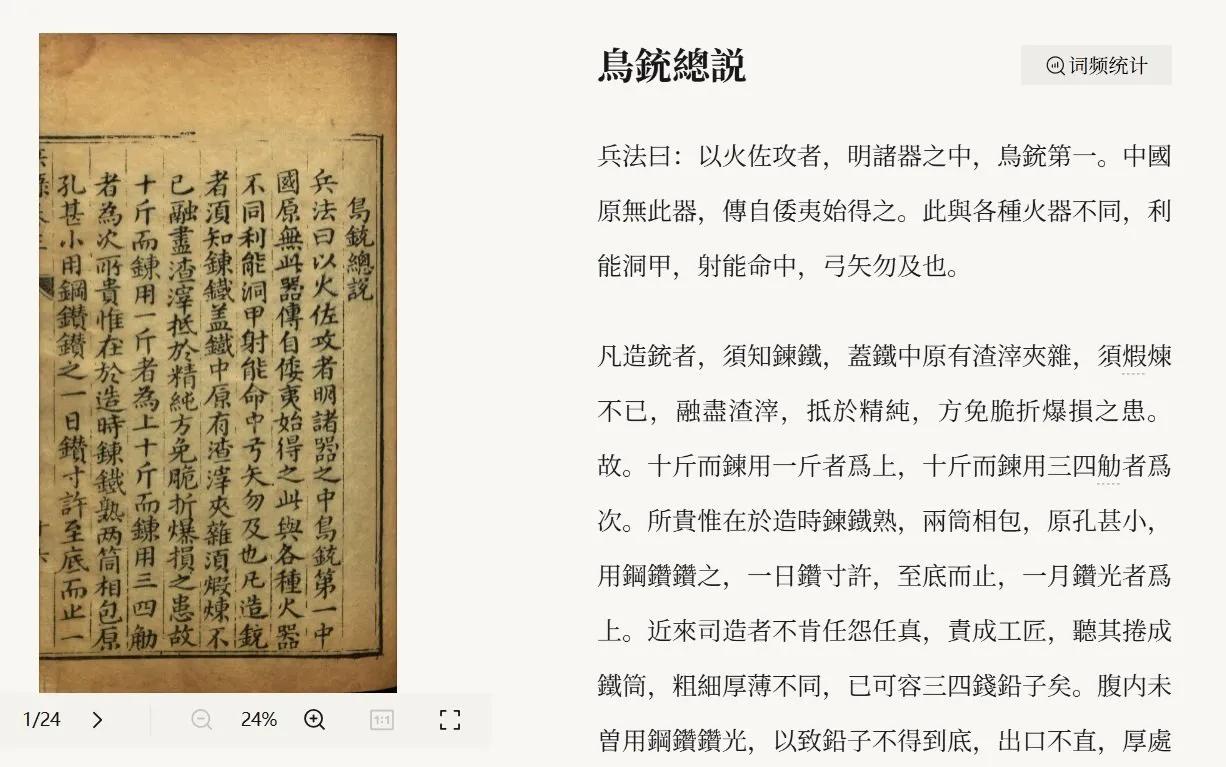 鳥銃總説
兵法曰以火佐攻者明諸器之中鳥銃第一中
國原無此器傳自倭夷始得之此與各種火器
不同利能洞甲射能命中弓矢勿及也凡造銃
者須知鍊鐵盖鐵中原有渣滓夾雜須煆煉不
已融盡渣滓抵於精純方免脆折爆損之患故
十斤而鍊用一斤者為上十斤而鍊用三四觔
者為次所貴惟在於造時鍊鐵熟两筒相包原
孔甚小用鋼鑽鑽之一日鑽寸許至底而止一
1/24
24%
1:1
鳥銃總説
词频统计
兵法曰：以火佐攻者，明諸器之中，鳥銃第一。中國
原無此器，傳自倭夷始得之。此與各種火器不同，利
能洞甲，射能命中，弓矢勿及也。
凡造銃者，須知鍊鐵，蓋鐵中原有渣滓夾雜，須煆煉
不已，融盡渣滓，抵於精純，方免脆折爆損之患。
故。十斤而鍊用一斤者爲上，十斤而鍊用三四觔者爲
次。所貴惟在於造時鍊鐵熟，兩筒相包，原孔甚小，
用鋼鑽鑽之，一日鑽寸許，至底而止，一月鑽光者爲
上。近來司造者不肯任怨任真，責成工匠，聽其捲成
鐵筒，粗細厚薄不同，已可容三四錢鉛子矣。腹内未
曾用鋼鑽鑽光，以致鉛子不得到底，出口不直，厚處